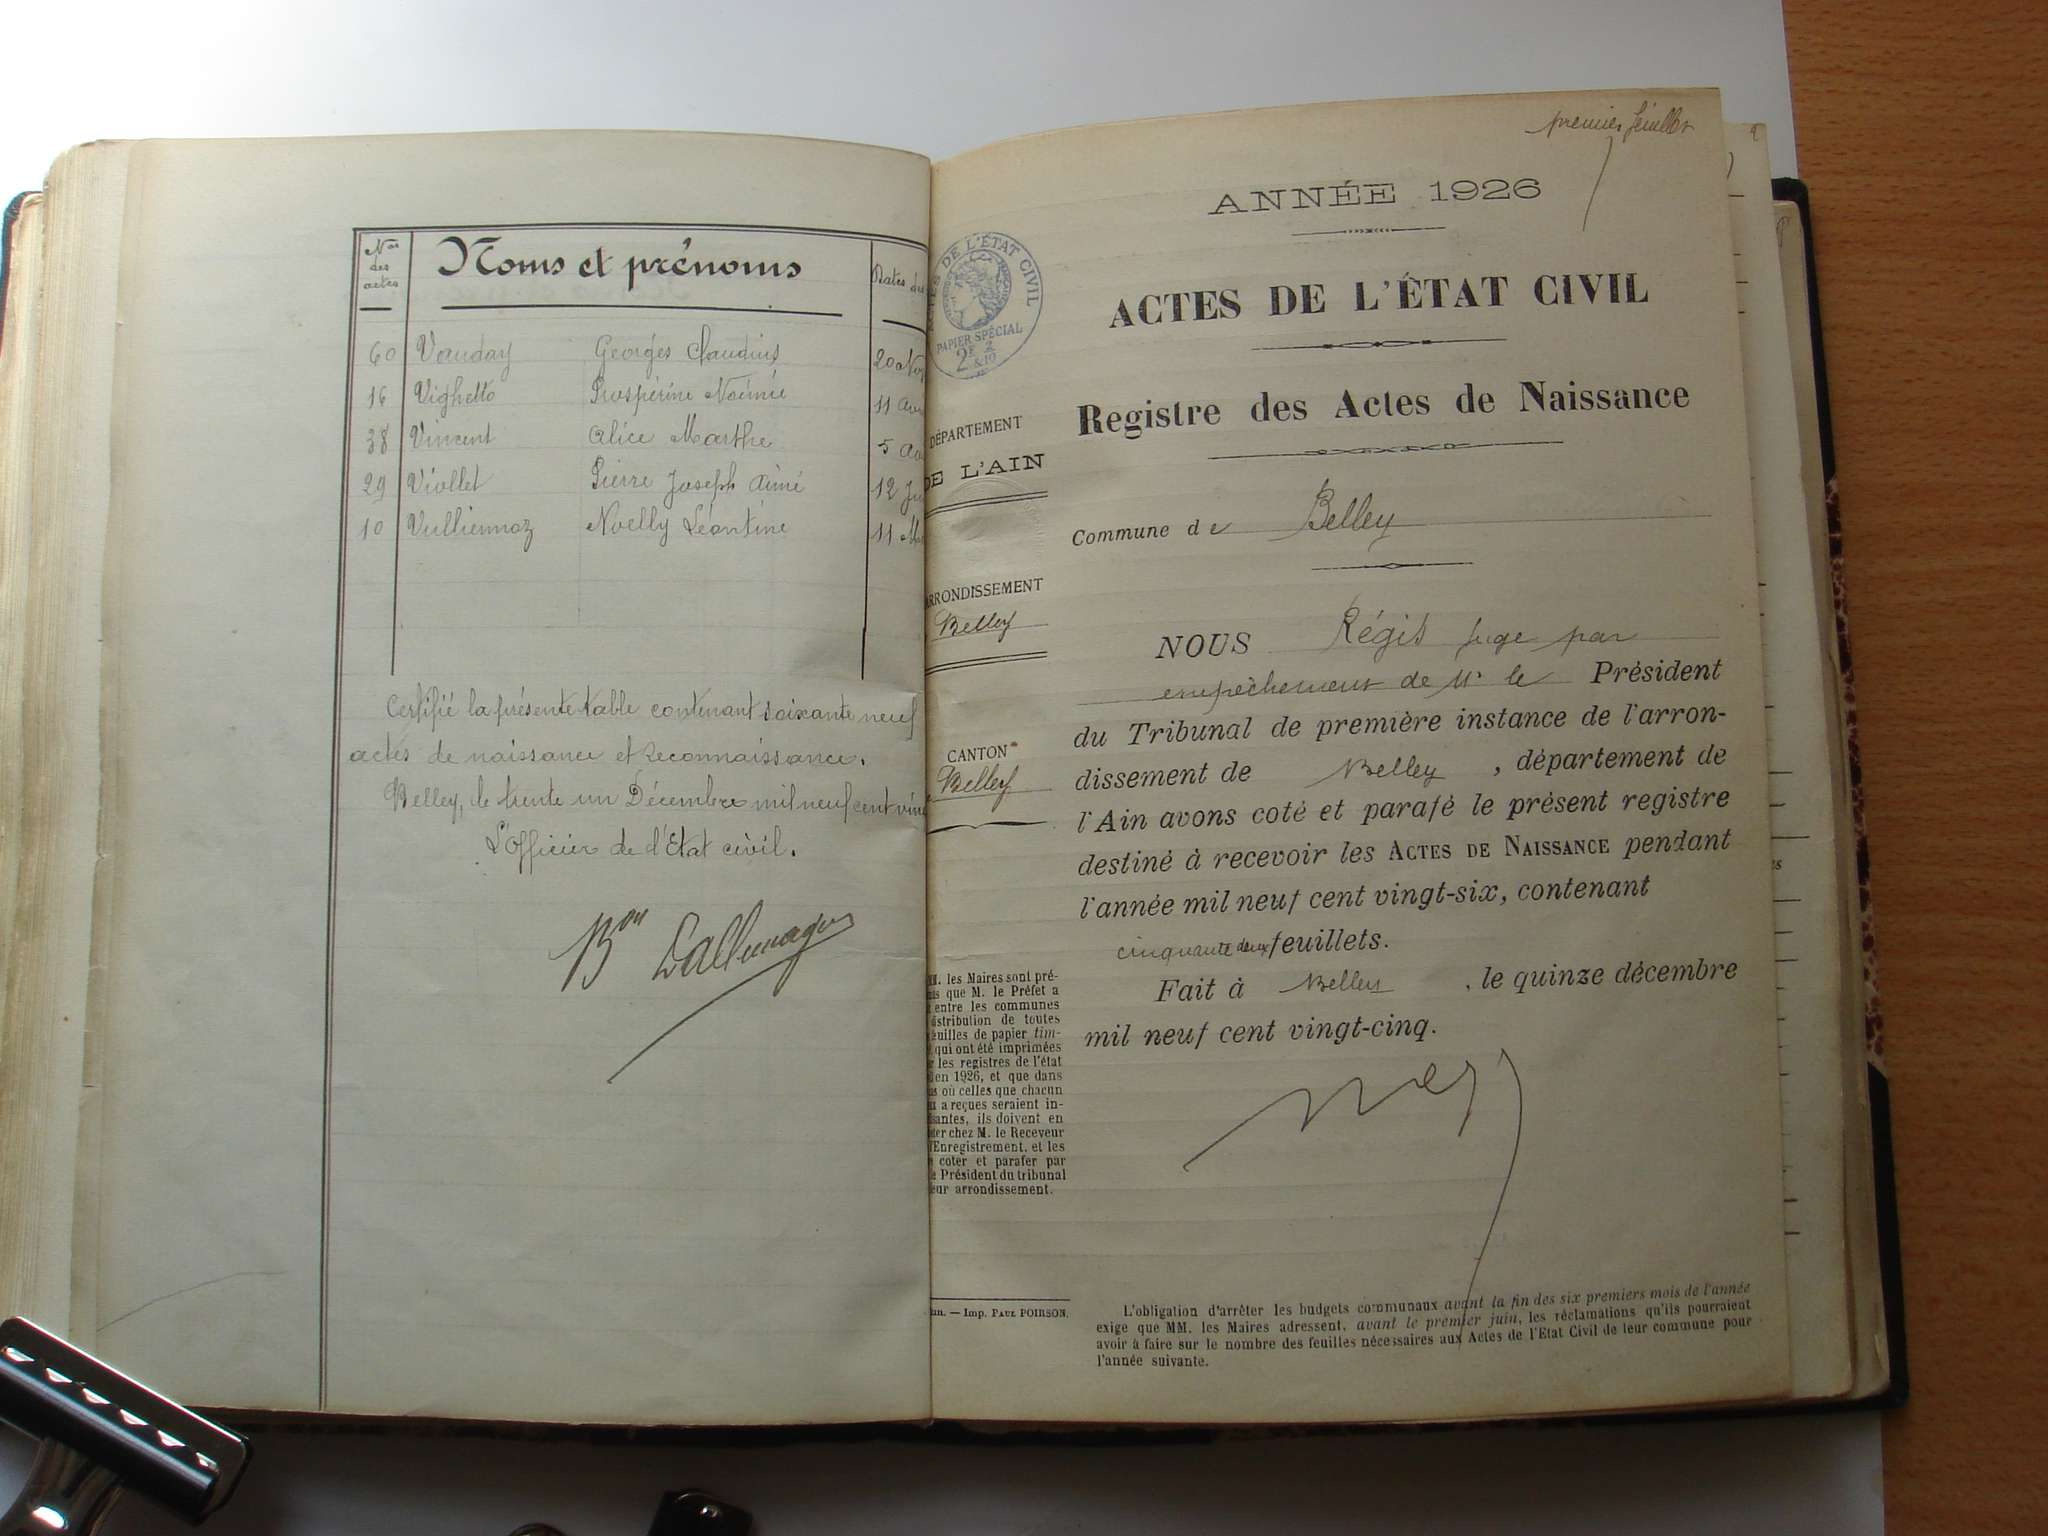 Nos des actes
Noms et prénoms
Dates des
60 Vauday Georges Claudius 20 Nov
16 Vighetto Prospérine Noémie 11 avr
38 Vincent Alice Marthe 5 Ao
29 Viollet Pierre Joseph Aimé 12 Ju
10 Vulliermoz Noelly Léontine 11 Ma
Certifié la présente table contenant soixante neuf
actes de naissance et reconnaissance.
Belley, le trente un Décembre mil neuf cent vin
L'officier de l'Etat civil.
Bon Dallemagne
premier feuillet
ANNÉE 1926
ACTES DE L'ÉTAT CIVIL
PAPIER SPÉCIAL
2F & 2/10
ACTES DE L'ÉTAT CIVIL
Registre des Actes de Naissance
DÉPARTEMENT
DE L'AIN
Commune de Belley
ARRONDISSEMENT
Belley
CANTON
Belley
NOUS Régis juge par
empêchement de Mr le Président
du Tribunal de première instance de l'arron-
dissement de Belley, département de
l'Ain avons coté et parafé le présent registre
destiné à recevoir les ACTES DE NAISSANCE pendant
l'année mil neuf cent vingt-six, contenant
cinquante deux feuillets.
Fait à Belley, le quinze décembre
mil neuf cent vingt-cinq.
MM. les Maires sont pré-
us que M. le Préfet a
entre les communes
istribution de toutes
euilles de papier tim-
qui ont été imprimées
les registres de l'état
en 1926, et que dans
as où celles que chacun
a reçues seraient in-
santes, ils doivent en
ter chez M. le Receveur
l'Enregistrement, et les
coter et parafer par
e Président du tribunal
eur arrondissement.
Imp. PAUL POIRSON.
L'obligation d'arrêter les budgets communaux avant la fin des six premiers mois de l'année
exige que MM. les Maires adressent, avant le premier juin, les réclamations qu'ils pourraient
avoir à faire sur le nombre des feuilles nécessaires aux Actes de l'Etat Civil de leur commune pour
l'année suivante.